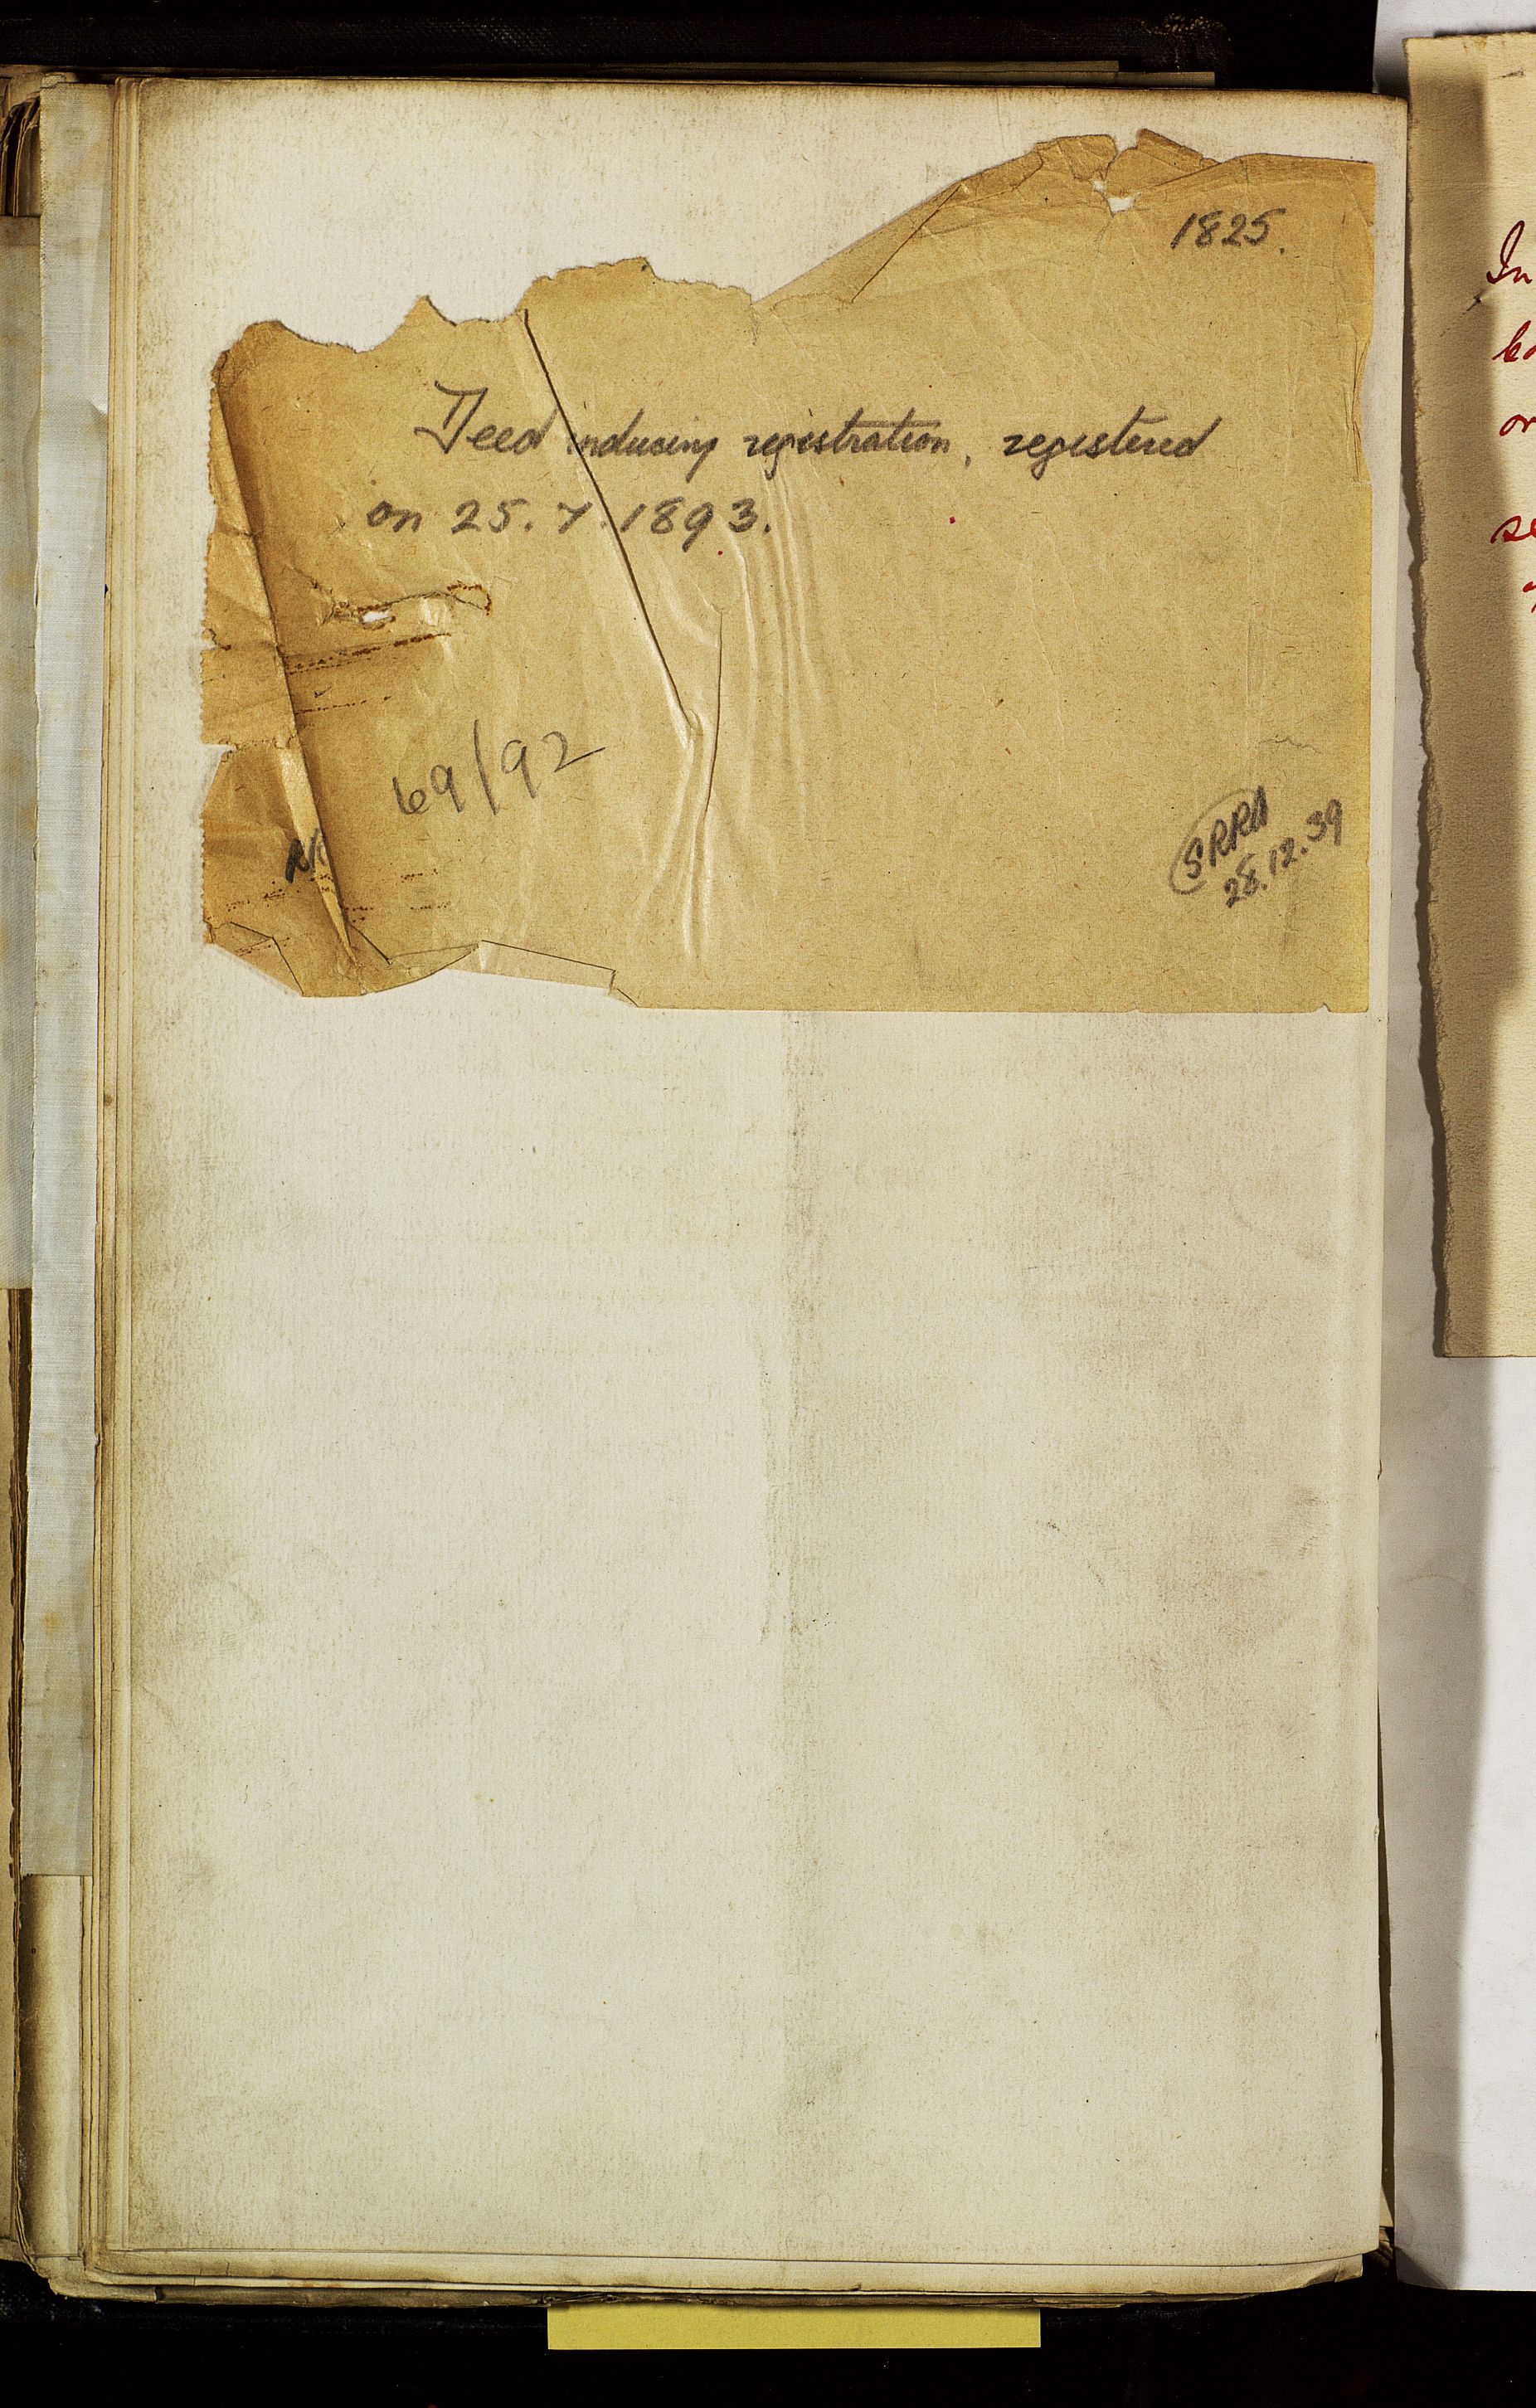 1825.
Deed inducing registration, registered
on 25.7.1893.
69/92
SRRA
28.12.39
In
or
se